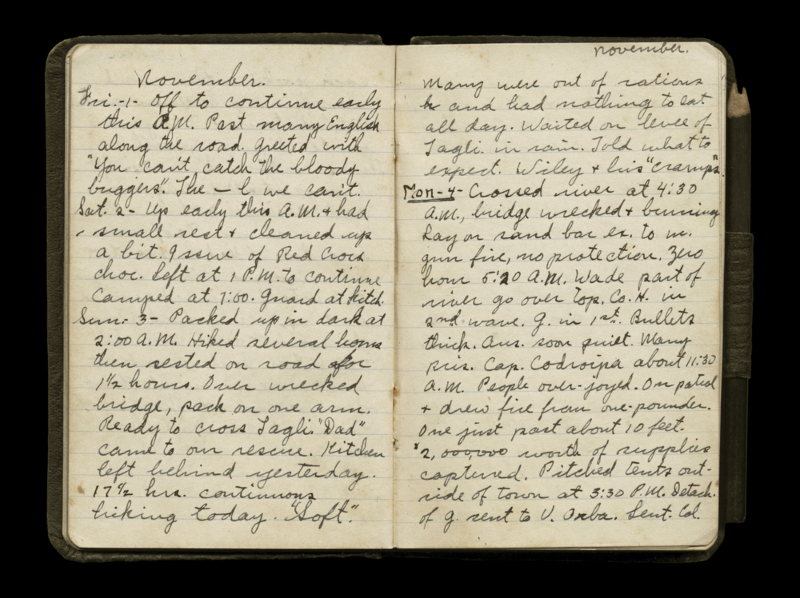 November.
Fri.-1- Off to continue early
this A.M. Past many English
along the road. greeted with
"You can't catch the bloody
buggers". The — l we can't.
Sat. 2- Up early this A.M. + had
small rest + cleaned up
a bit. Issue of Red Cross
choc. left at 1 P.M. to continue
Camped at 7:00. Guard at kitch.
Sun. 3- Packed up in dark at
2:00 A.M. Hiked several hours
then rested on road for
1½ hours. Over wrecked
bridge, pack on one arm.
Ready to cross Tagli. "Dad"
came to our rescue. Kitchen
left behind yesterday.
17½ hrs. continuous
hiking today. "Soft".
November.
Many were out of rations
and had nothing to eat
all day. Waited on levee of
Tagli. in rain. Told what to
expect. Wiley + his "cramps".
Mon-4- Crossed river at 4:30
A.M., bridge wrecked + burning
Lay on sand bar ex. to m.
gun fire, no protection. Zero
hour 5:20 A.M. Wade part of
river go over top. Co. H. in
2nd wave. G. in 1st. Bullets
thick. Aus. soon quiet. Many
pris. Cap. Codroipa about 11:30
A.M. People over-joyed. On patrol
+ drew fire from one-pounder.
One just past about 10 feet.
$2,000,000 worth of supplies
captured. Pitched tents out-
side of town at 3:30 P.M. Detach.
of G. sent to V. Orba. Sent. Col.